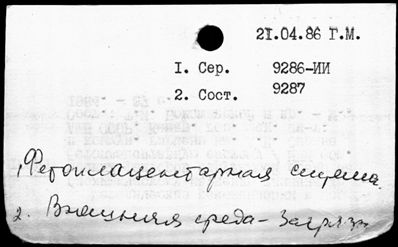 21.04.86 Г.М.
I. Сер. 9286-ИИ
2. Сост. 9287
1. Фетоплацентарная система.
2. Внешняя среда - Загрязн